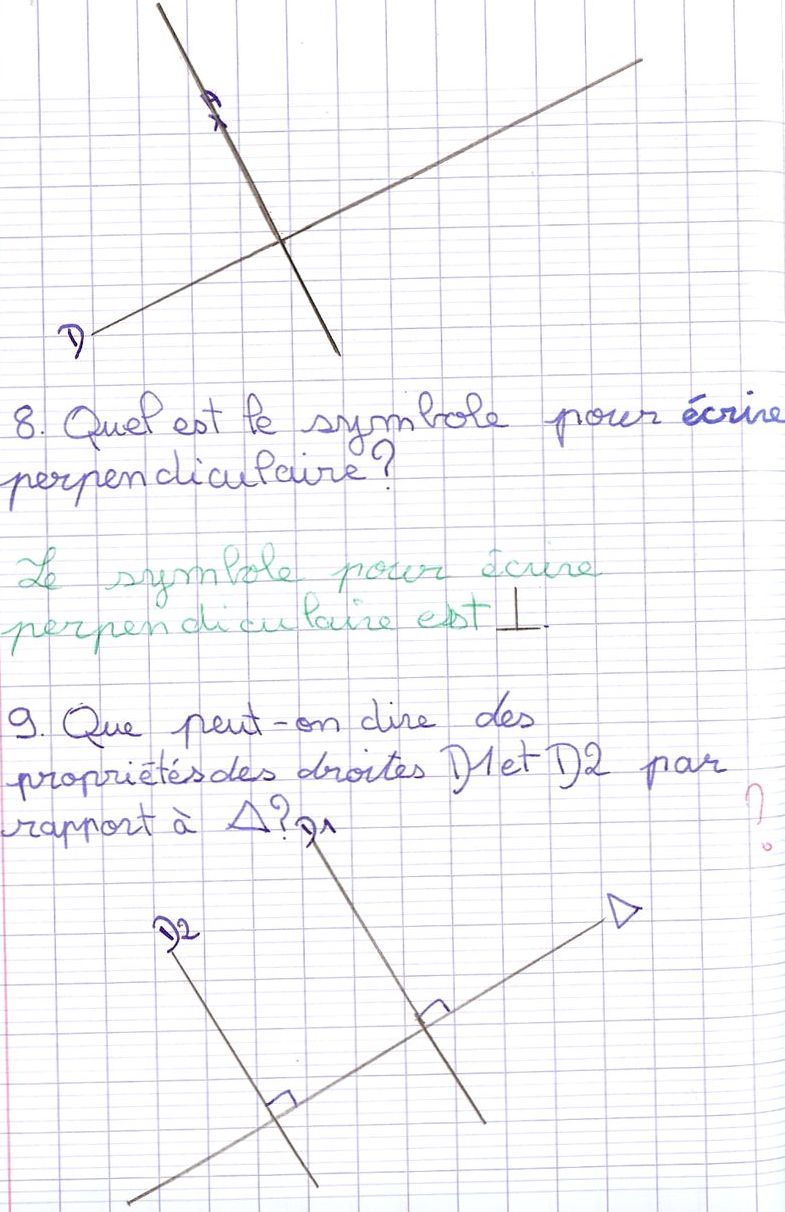 A
D
8. Quel est le symbole pour écrire
perpendiculaire?
Le symbole pour écrire
perpendiculaire est ⊥.
9. Que peut-on dire des
propriétés des droites D1 et D2 par
rapport à Δ?
?
D1
D2
Δ